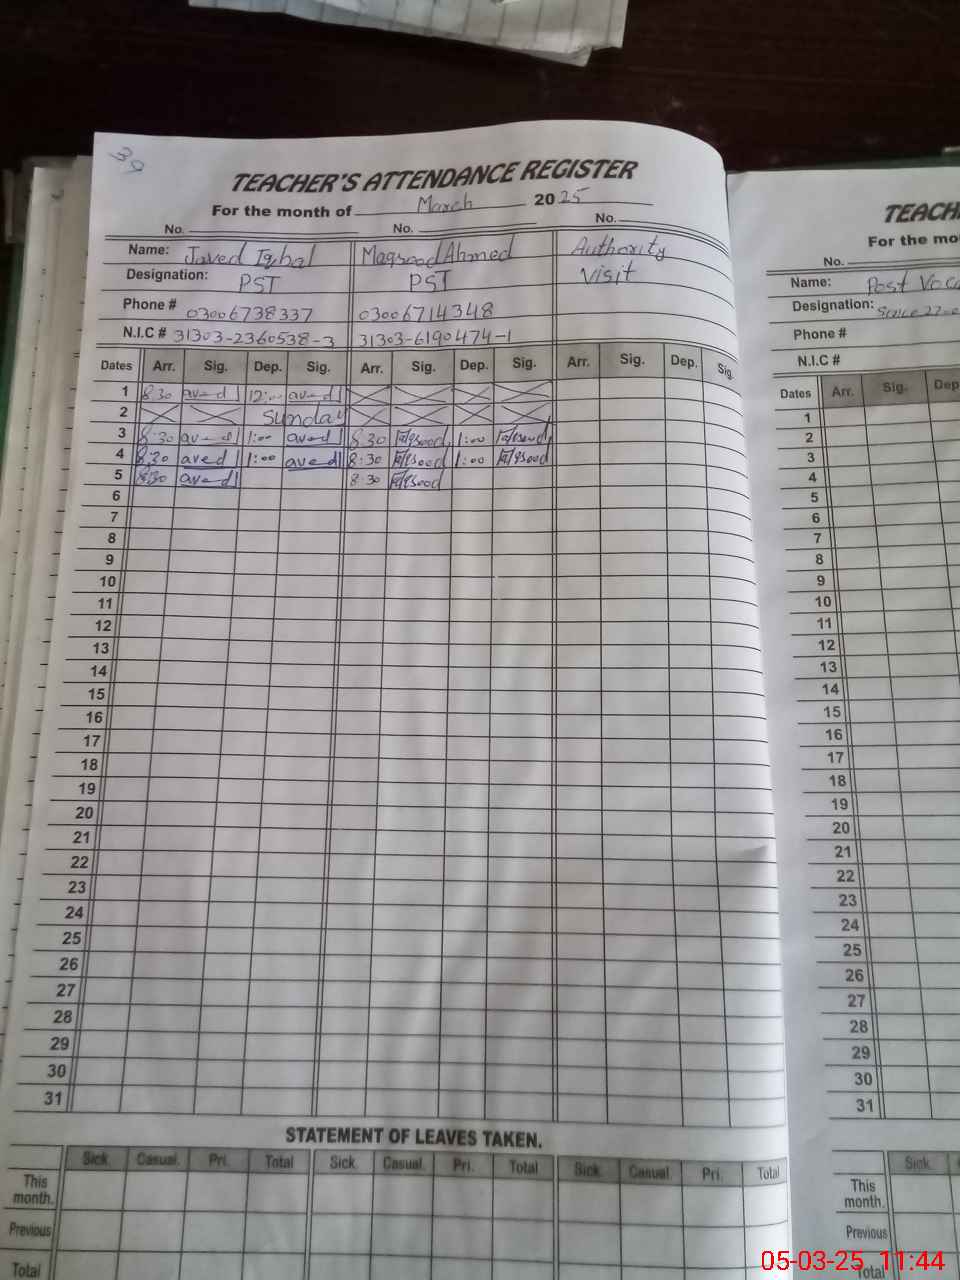 39
TEACHER'S ATTENDANCE REGISTER
For the month of March 2025
No. No. No.
Name: Javed Iqbal Maqsood Ahmed Authority
Designation: PST PST Visit
Phone # 03006738337 03006714348
N.I.C # 31303-2360538-3 31303-6190474-1
Dates Arr. Sig. Dep. Sig. Arr. Sig. Dep. Sig. Arr. Sig. Dep. Sig.
1 8:30 aved 12:00 aved
2 Sunday
3 8:30 aved 1:00 aved 8:30 Maqsood 1:00 Maqsood
4 8:30 aved 1:00 aved 8:30 Maqsood 1:00 Maqsood
5 8:30 aved 8:30 Maqsood
6
7
8
9
10
11
12
13
14
15
16
17
18
19
20
21
22
23
24
25
26
27
28
29
30
31
STATEMENT OF LEAVES TAKEN.
Sick. Casual. Pri. Total Sick. Casual. Pri. Total Sick. Casual. Pri. Total
This month.
Previous
Total
TEACH
For the mo
No.
Name: Post Vaca
Designation: Since
Phone #
N.I.C #
Dates Arr. Sig. Dep
1
2
3
4
5
6
7
8
9
10
11
12
13
14
15
16
17
18
19
20
21
22
23
24
25
26
27
28
29
30
31
Sick.
This month.
Previous
Total
05-03-25 11:44